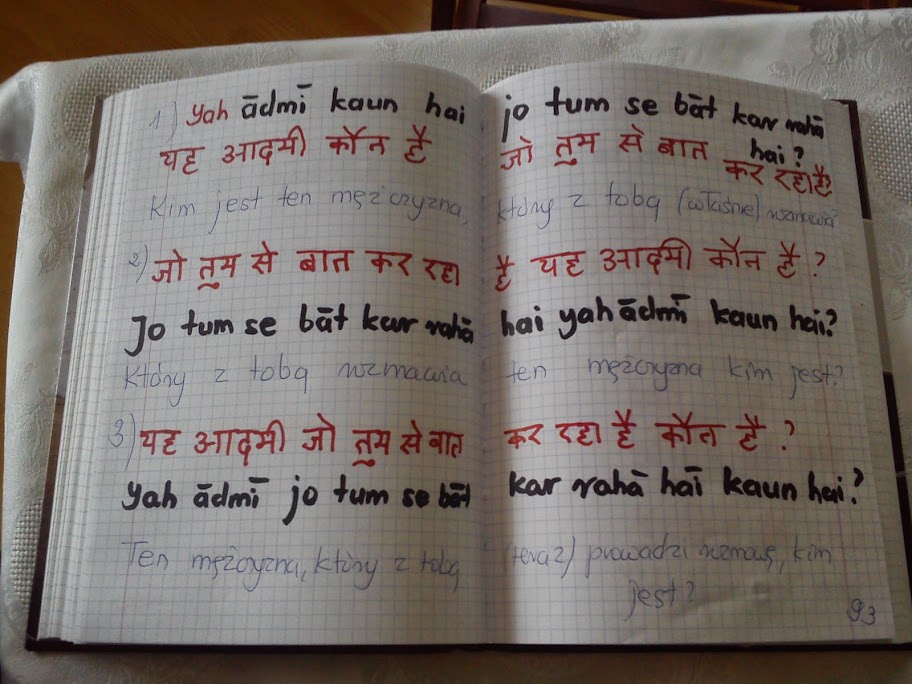 1) Yah ādmī kaun hai jo tum se bāt kar rahā
hai?
यह आदमी कौन है जो तुम से बात कर रहा है?
Kim jest ten mężczyzna, który z tobą (właśnie) rozmawia?
2) जो तुम से बात कर रहा है यह आदमी कौन है ?
Jo tum se bāt kar rahā hai yah ādmī kaun hai?
Który z tobą rozmawia ten mężczyzna kim jest?
3) यह आदमी जो तुम से बात कर रहा है कौन है ?
Yah ādmī jo tum se bāt kar rahā haī kaun hai?
Ten mężczyzna, który z tobą (teraz) prowadzi rozmowę, kim
jest?
93